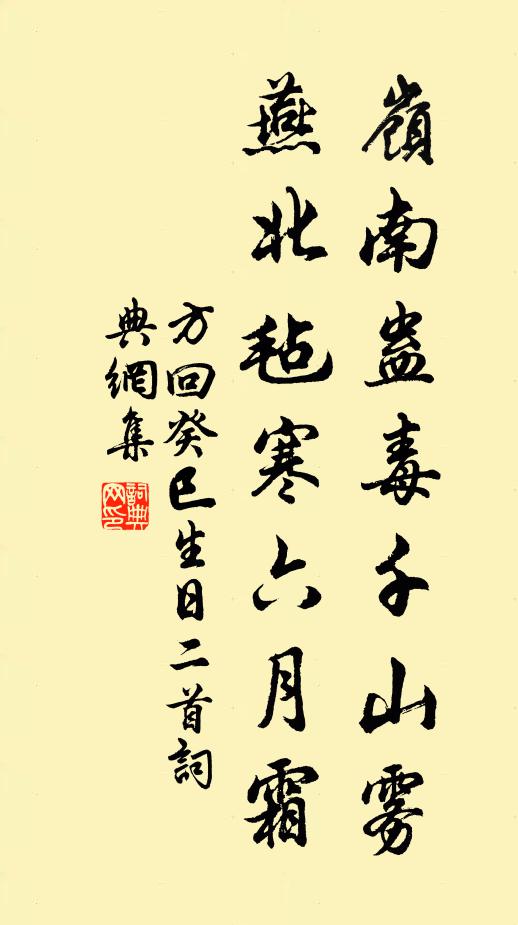 嶺南蠱毒千山雾
燕北毡寒六月霜
方回癸巳生日二首詞
典網集
詞典网印